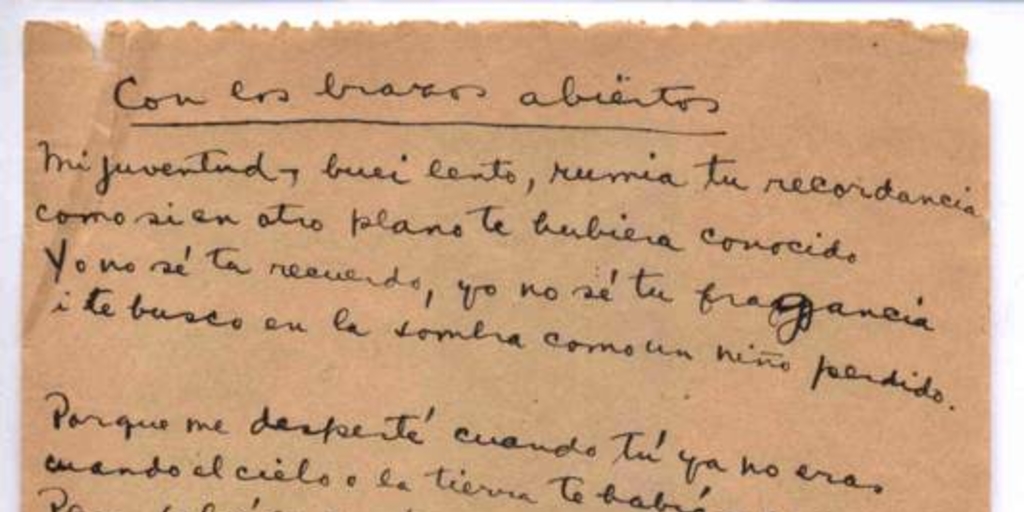 Con los brazos abiertos
Mi juventud, buei lento, rumia tu recordancia
como si en otro plano te hubiera conocido
Yo no sé tu recuerdo, yo no sé tu fragancia
i te busco en la sombra como un niño perdido.
Porque me desperté cuando tú ya no eras
cuando el cielo o la tierra te había